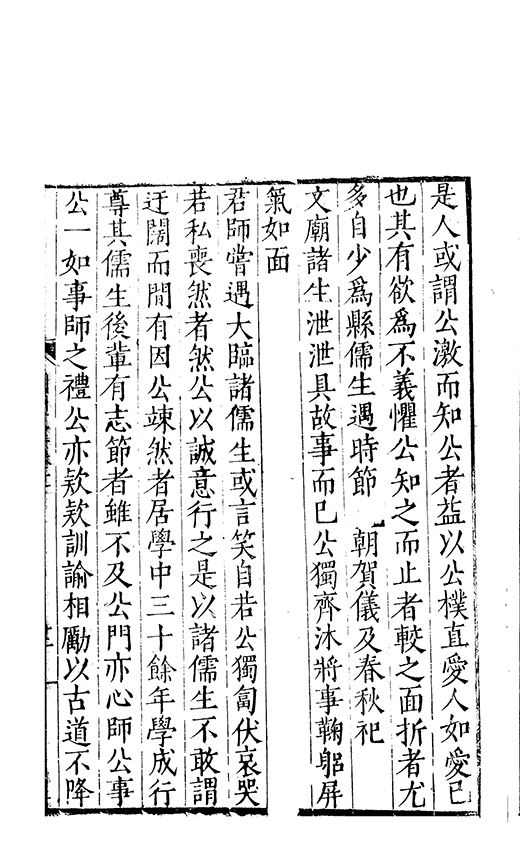 是人或謂公激而知公者益以公樸直愛人如愛己
也其有欲爲不義懼公知之而止者較之面折者尤
多自少爲縣儒生遇時節 朝賀儀及春秋祀
文廟諸生泄泄具故事而已公獨齊沐將事鞠躳屏
氣如面
君師嘗遇大臨諸儒生或言笑自若公獨匐伏哀哭
若私喪然者然公以誠意行之是以諸儒生不敢謂
迂闊而間有因公竦然者居學中三十餘年學成行
尊其儒生後輩有志節者雖不及公門亦心師公事
公一如事師之禮公亦欵欵訓諭相勵以古道不降